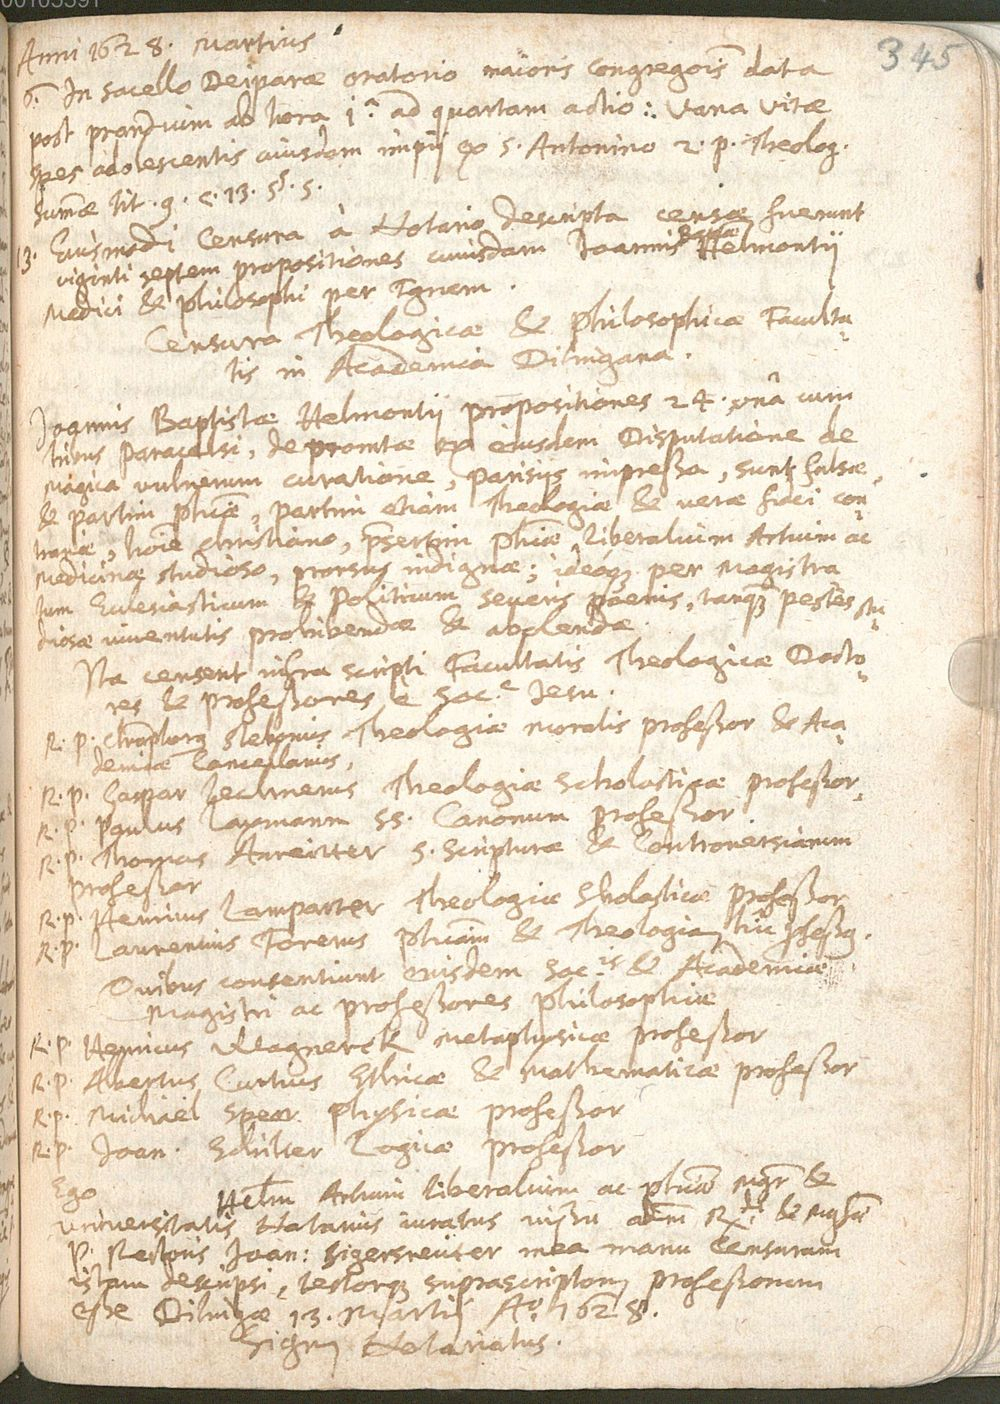 00105391
345
Anni 1628. Martius
6. In sacello Deiparæ oratorio maioris congregõis data
post prandium ab hora j.ª ad quartam actio: Vana vitæ
spes adolescentis cuiusdam impij ex S. Antonino 2. p. Theolog.
Sum̃æ tit. 9. c. 13. §. 5.
13. Eiusmodi Censura à Notario descripta censæ fuerunt
viginti septem propositiones cuiusdam Joannis Baptistæ Helmontij
Medici & Philosophi per Ignem.
Censura Theologicæ & Philosophicæ Faculta-
tis in Academia Dilingana.
Joannis Baptistæ Helmontij propositiones 24. unâ cum
tribus Paracelsi, depromtæ ex eiusdem Disputatione de
magica vulnerum curatione, Parisijs impreßa, sunt falsæ,
& partim phiæ, partim etiam Theologiæ & veræ fidei con-
trariæ, hoie christiano, p̃sertim phiæ, liberalium Artium ac
Medicinæ studioso, prorsus indignæ; ideoq; per Magistra
tum Ecclesiasticum & Politicum severis pœnis, tanq̃ pestes stu-
diosæ iuventutis prohibendæ & abolendæ.
Ita censent infra scripti Facultatis Theologicæ Docto-
res & profeßores e Soc.e Jesu.
R. P. Stebonius Theologiæ moralis profeßor & Aca-
demiæ Cancellarius,
R. P. Caspar Lechnerus Theologiæ Scholasticæ profeßor,
R. P. Paulus Laymann SS. Canonum profeßor
R. P. Thomas Anreitter S. Scripturæ & Controuersiarum
profeßor
R. P. Henricus Lamparter Theologiæ Scholasticæ profeßor
R. P. Laurentius Forerus & Theologiæ
Quibus consentiunt eiusdem Soc.is & Academiæ
Magistri ac profeßores Philosophiæ
R. P. Henricus Wagnereck Metaphysicæ profeßor
R. P. Albertus Curtius Ethicæ & Mathematicæ profeßor
R. P. Michael Speer Physicæ profeßor
R. P. Joan. Schilter Logicæ profeßor
Ego Helm Artium liberalium ac &
Vniversitatis Notarius iuratus iußu &
P. Rectoris Joan: Sigersreuter mea manu Censuram
istam descripsi, testorq; suprascriptorum profeßorum
eße Dilingæ 13. Martij Aº. 1628.
Signum Notariatus.